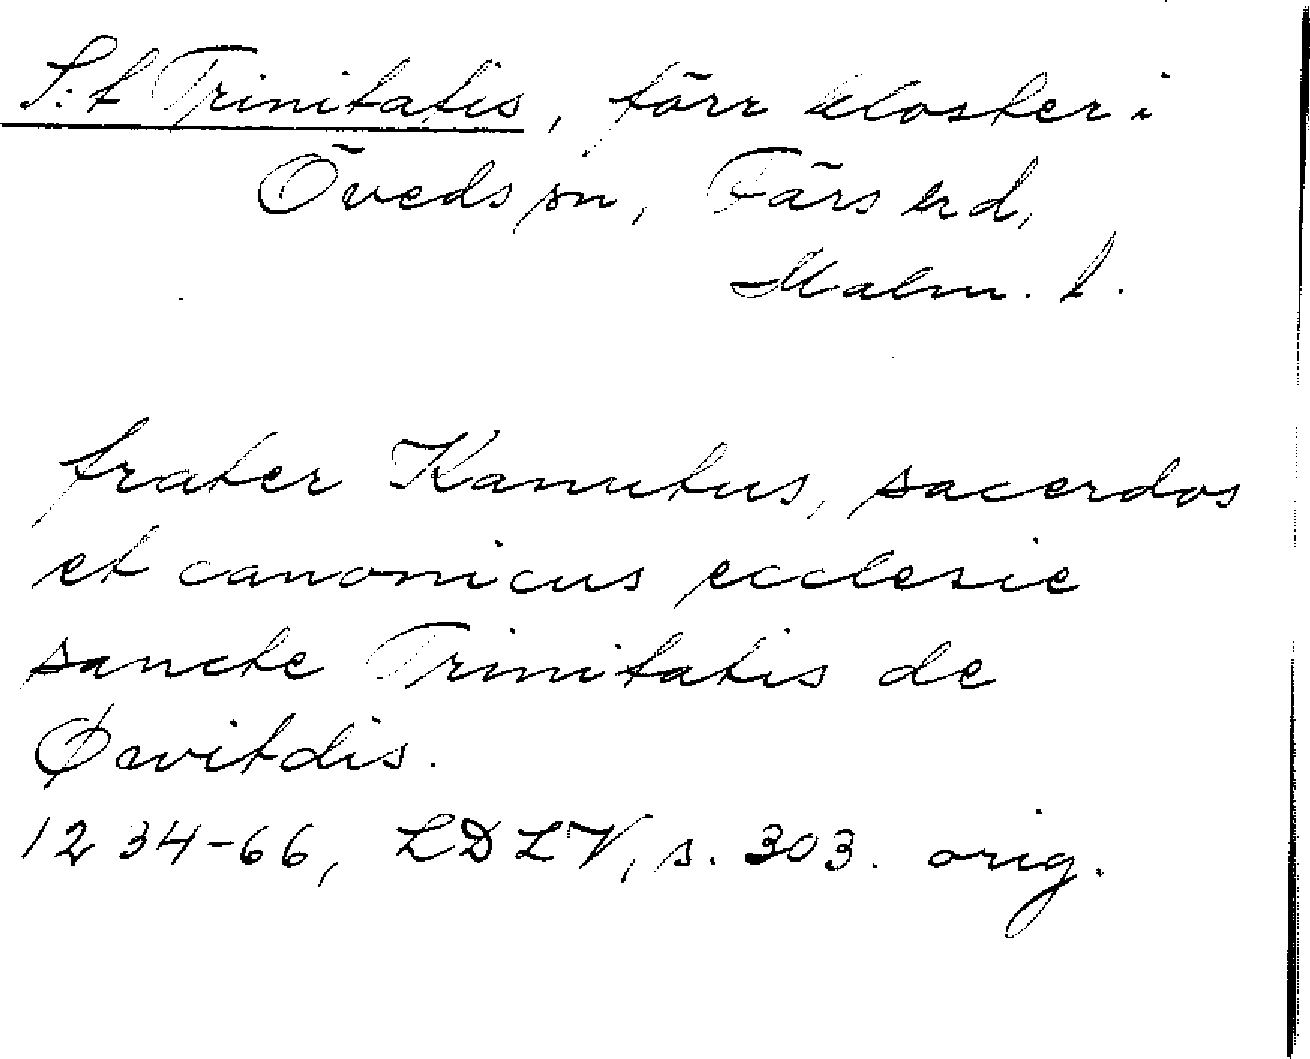 S:t Trinitatis, förr kloster i
Öveds sn, Färs hd,
Malm. l.
frater Kanutus, sacerdos
et canonicus ecclesie
sancte Trinitatis de
Øwitdis.
1234-66, LDLV, s. 303. orig.